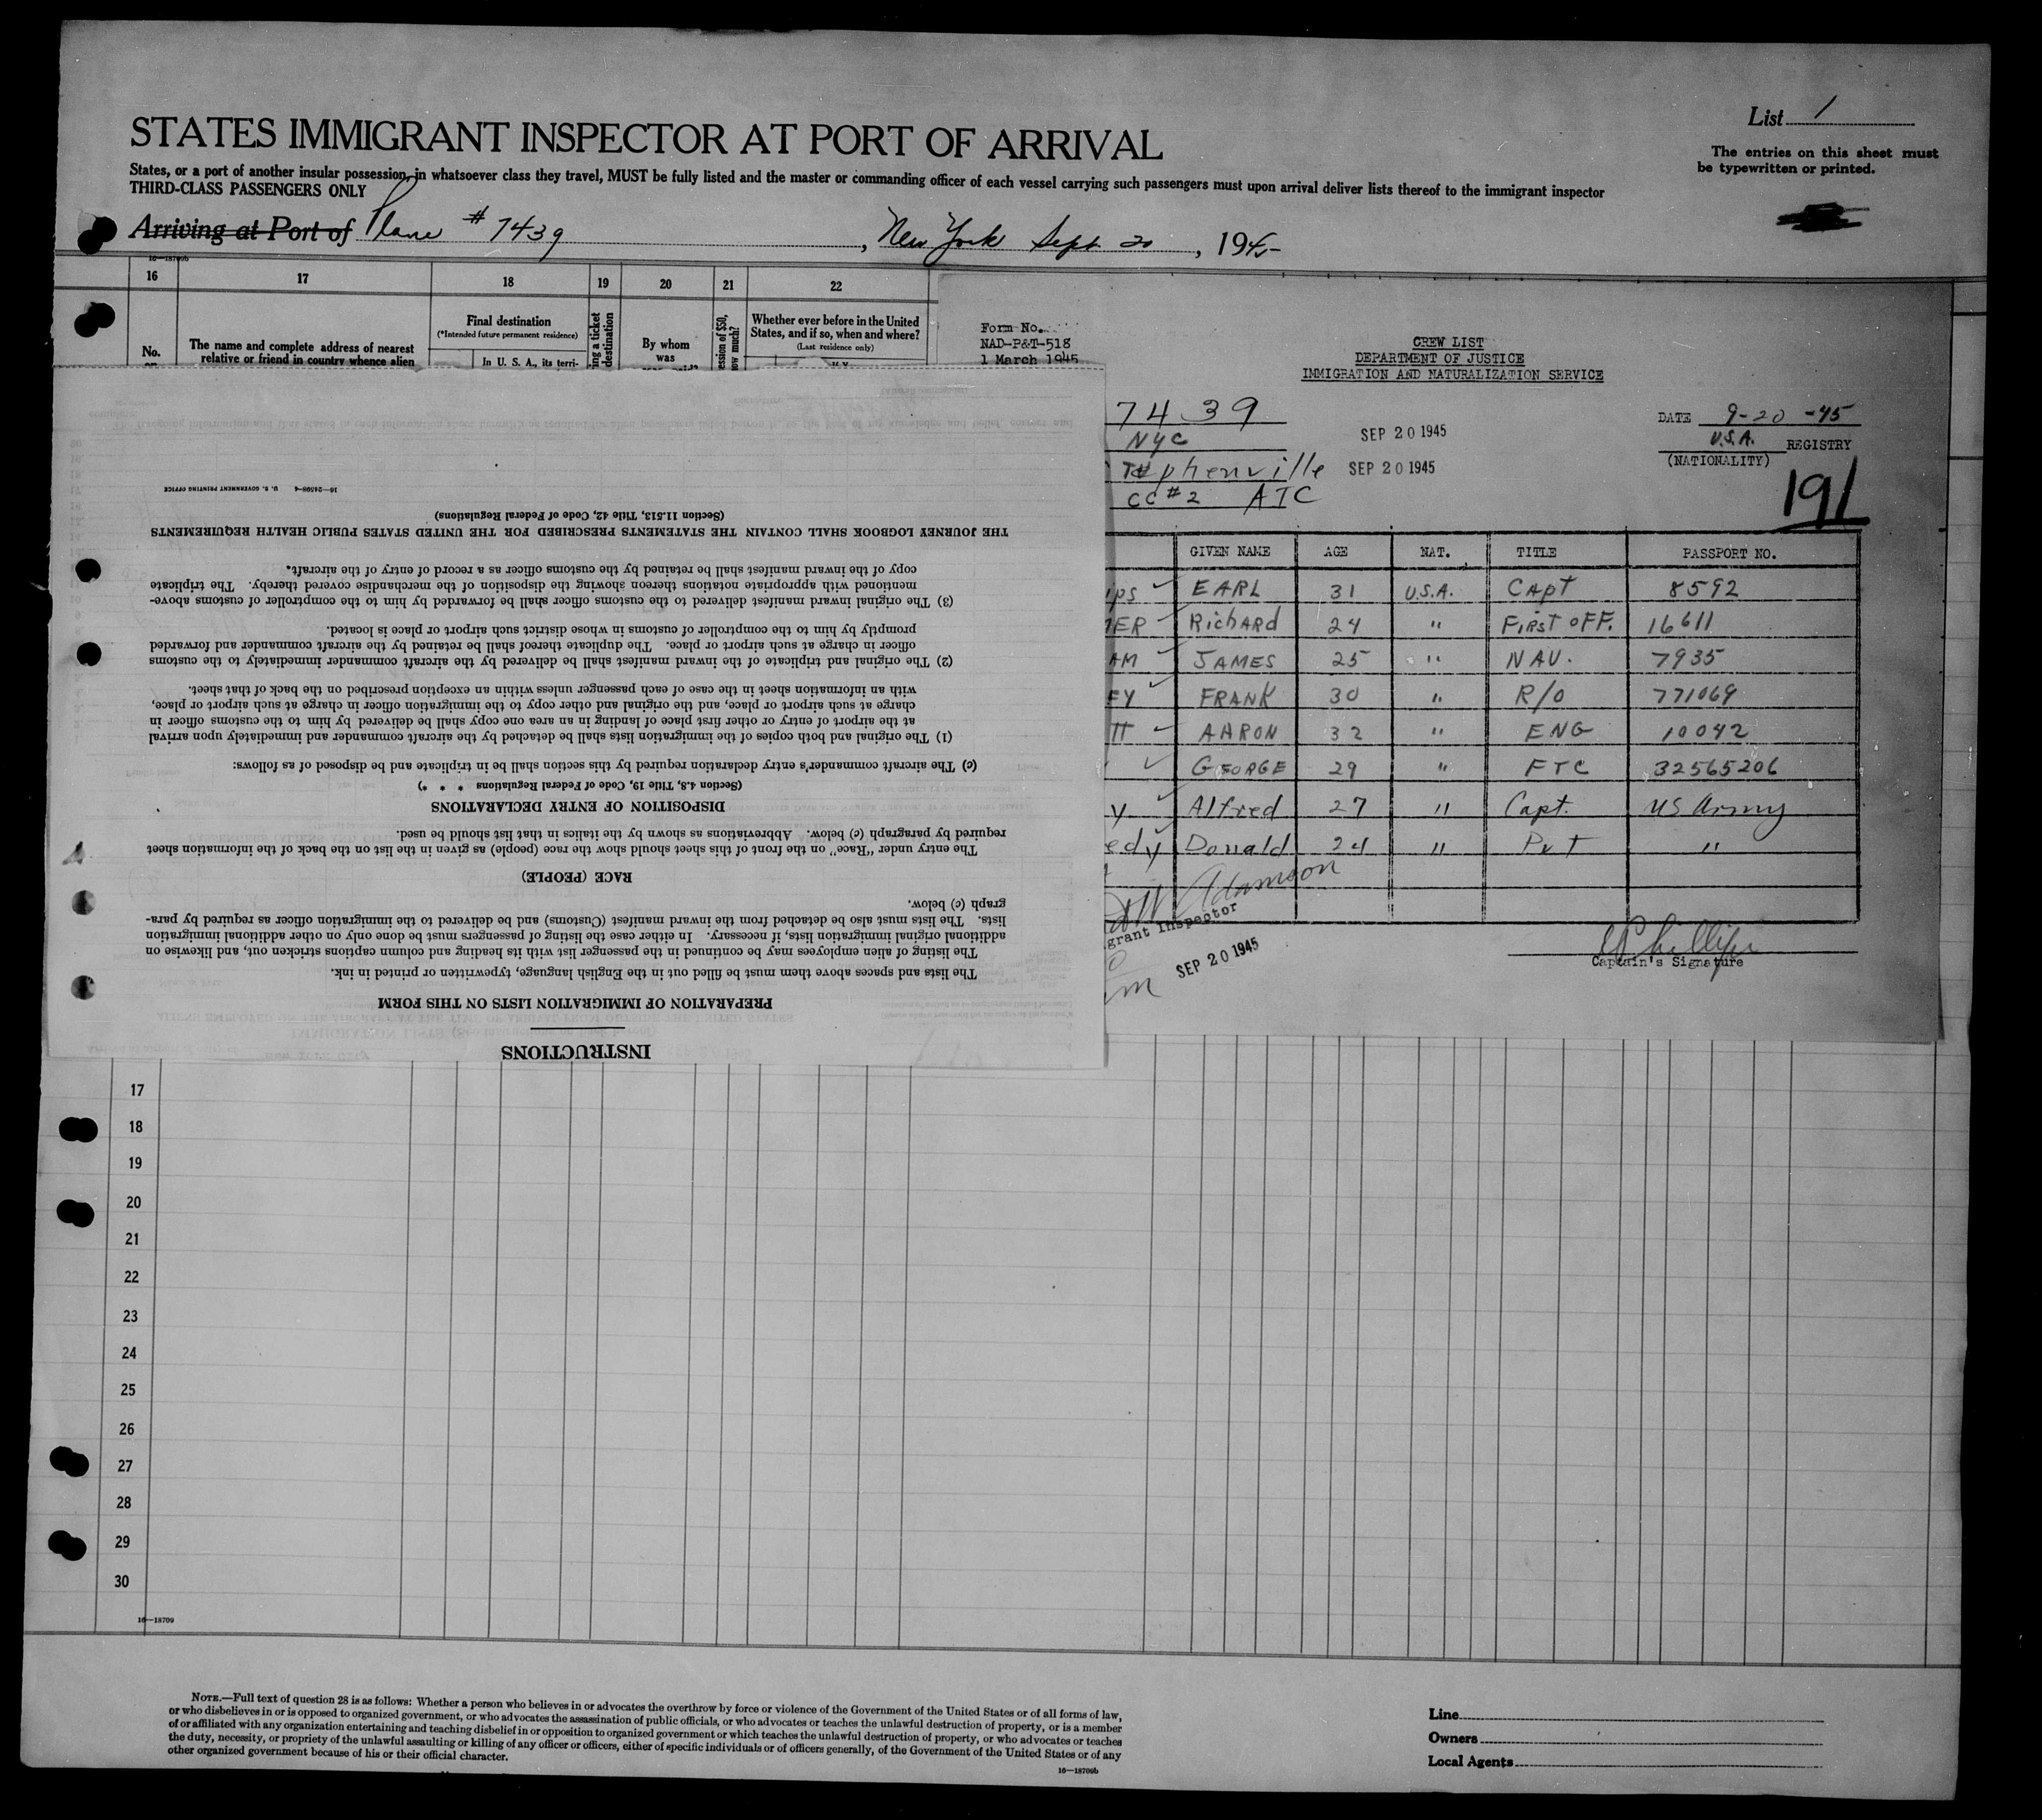 List 1
STATES IMMIGRANT INSPECTOR AT PORT OF ARRIVAL
The entries on this sheet must
be typewritten or printed.
States, or a port of another insular possession, in whatsoever class they travel, MUST be fully listed and the master or commanding officer of each vessel carrying such passengers must upon arrival deliver lists thereof to the immigrant inspector
THIRD-CLASS PASSENGERS ONLY
Arriving at Port of Plane # 7439, New York Sept. 20, 1945
16—18709b
16 17 18 19 20 21 22
No.
The name and complete address of nearest
relative or friend in country whence alien
Final destination
(*Intended future permanent residence)
In U. S. A., its terri-
ng a ticket
destination
By whom
was
ession of $50,
ow much?
Whether ever before in the United
States, and if so, when and where?
(Last residence only)
Form No.
NAD-P&T-518
1 March 1945
CREW LIST
DEPARTMENT OF JUSTICE
IMMIGRATION AND NATURALIZATION SERVICE
7439
NYC SEP 20 1945
phenville SEP 20 1945
CC#2 ATC
DATE 9-20-45
U.S.A. REGISTRY
(NATIONALITY)
191
GIVEN NAME AGE NAT. TITLE PASSPORT NO.
ips EARL 31 U.S.A. CApt 8592
ER RicHARd 24 " FiRsT oFF. 16611
AM JAMES 25 " NAV. 7935
EY FRANK 30 " R/O 771069
TT AARON 32 " ENG 10042
GEORGE 29 " FTC 32565206
y. Alfred 27 " Capt. US Army
edy Donald 24 " Pvt "
Adamson
grant Inspector
SEP 20 1945
Captain's Signature
INSTRUCTIONS
PREPARATION OF IMMIGRATION LISTS ON THIS FORM
The lists and spaces above them must be filled out in the English language, typewritten or printed in ink.
The listing of alien employees may be continued in the passenger list with its heading and column captions stricken out, and likewise on
additional original immigration lists, if necessary. In either case the listing of passengers must be done only on other additional immigration
lists. The lists must also be detached from the inward manifest (Customs) and be delivered to the immigration officer as required by para-
graph (c) below.
RACE (PEOPLE)
The entry under "Race" on the front of this sheet should show the race (people) as given in the list on the back of the information sheet
required by paragraph (c) below. Abbreviations as shown by the italics in that list should be used.
DISPOSITION OF ENTRY DECLARATIONS
(Section 4.8, Title 19, Code of Federal Regulations * * *)
(c) The aircraft commander's entry declaration required by this section shall be in triplicate and be disposed of as follows:
(1) The original and both copies of the immigration lists shall be detached by the aircraft commander and immediately upon arrival
at the airport of entry or other first place of landing in an area one copy shall be delivered by him to the customs officer in
charge at such airport or place, and the original and other copy to the immigration officer in charge at such airport or place,
with an information sheet in the case of each passenger unless within an exception prescribed on the back of that sheet.
(2) The original and triplicate of the inward manifest shall be delivered by the aircraft commander immediately to the customs
officer in charge at such airport or place. The duplicate thereof shall be retained by the aircraft commander and forwarded
promptly by him to the comptroller of customs in whose district such airport or place is located.
(3) The original inward manifest delivered to the customs officer shall be forwarded by him to the comptroller of customs above-
mentioned with appropriate notations thereon showing the disposition of the merchandise covered thereby. The triplicate
copy of the inward manifest shall be retained by the customs officer as a record of entry of the aircraft.
THE JOURNEY LOGBOOK SHALL CONTAIN THE STATEMENTS PRESCRIBED FOR THE UNITED STATES PUBLIC HEALTH REQUIREMENTS
(Section 11.513, Title 42, Code of Federal Regulations)
16—24598-4 U. S. GOVERNMENT PRINTING OFFICE
17
18
19
20
21
22
23
24
25
26
27
28
29
30
16—18709
NOTE.—Full text of question 28 is as follows: Whether a person who believes in or advocates the overthrow by force or violence of the Government of the United States or of all forms of law,
or who disbelieves in or is opposed to organized government, or who advocates the assassination of public officials, or who advocates or teaches the unlawful destruction of property, or is a member
of or affiliated with any organization entertaining and teaching disbelief in or opposition to organized government or which teaches the unlawful destruction of property, or who advocates or teaches
the duty, necessity, or propriety of the unlawful assaulting or killing of any officer or officers, either of specific individuals or of officers generally, of the Government of the United States or of any
other organized government because of his or their official character.
16—18709b
Line
Owners
Local Agents